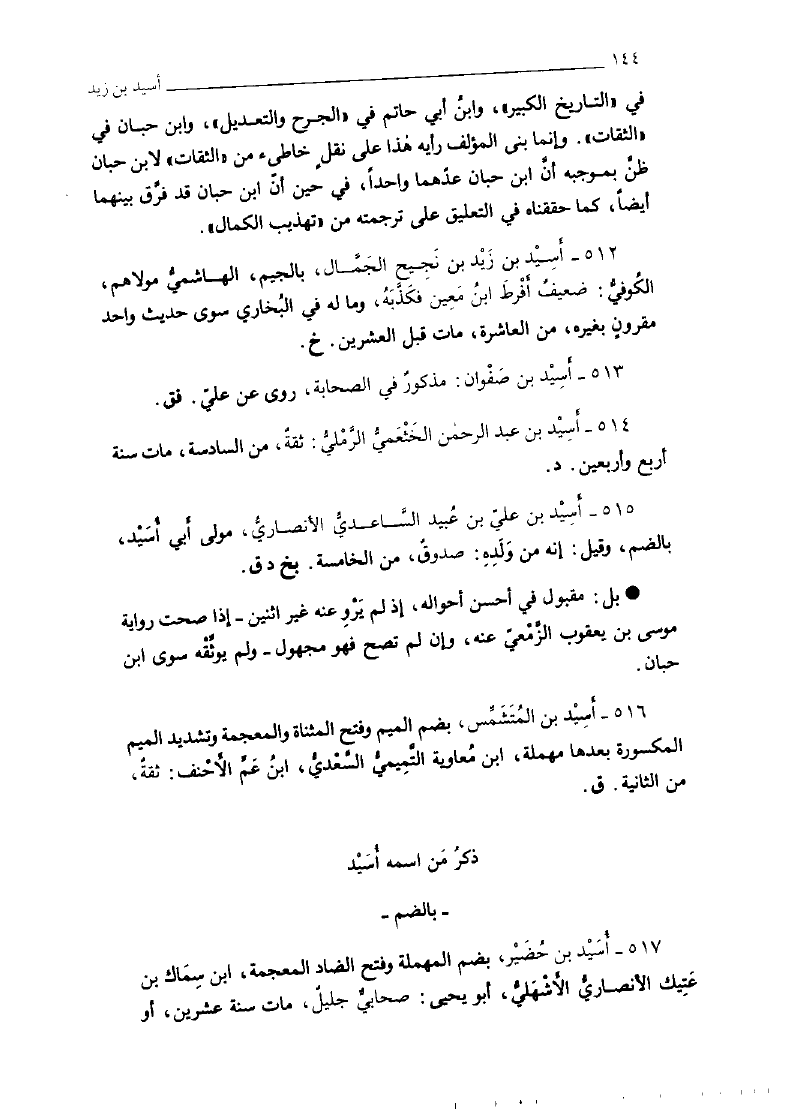 ١٤٤ أسيد بن زيد
في «التاريخ الكبير»، وابنُ أبي حاتم في «الجرح والتعديل»، وابن حبان في
«الثقات». وإنما بنى المؤلف رأيه هٰذا على نقلٍ خاطىء من «الثقات» لابن حبان
ظنَّ بموجبه أنَّ ابن حبان عدّهما واحداً، في حين أنّ ابن حبان قد فرَّق بينهما
أيضاً، كما حققناه في التعليق على ترجمته من «تهذيب الكمال».
٥١٢ - أَسِيْد بن زَيْد بن نَجِيح الجَمَّال، بالجيم، الهاشميُّ مولاهم،
الكُوفيُّ: ضعيفٌ أَفرطَ ابنُ مَعين فكَذَّبَهُ، وما له في البُخاري سوى حديث واحد
مقرونٍ بغيره، من العاشرة، مات قبل العشرين. خ.
٥١٣ - أَسِيْد بن صَفْوان: مذكورٌ في الصحابة، روى عن عليّ. فق.
٥١٤ - أَسِيْد بن عبد الرحمٰن الخَثْعميُّ الرَّمْليُّ: ثقةٌ، من السادسة، مات سنة
أربع وأربعين. د.
٥١٥ - أَسِيْد بن عليّ بن عُبيد السَّاعديُّ الأنصاريُّ، مولى أَبي أُسَيْد،
بالضم، وقيل: إنه من وَلَدِهِ: صدوقٌ، من الخامسة. بخ د ق.
● بل: مقبول في أحسن أحواله، إذ لم يَرْوِ عنه غير اثنين - إذا صحت رواية
موسى بن يعقوب الزَّمْعيّ عنه، وإن لم تصح فهو مجهول - ولم يوثِّقْه سوى ابن
حبان.
٥١٦ - أَسِيْد بن المُتَشَمِّس، بضم الميم وفتح المثناة والمعجمة وتشديد الميم
المكسورة بعدها مهملة، ابن مُعاوية التَّمِيميُّ السَّعْديُّ، ابنُ عَمِّ الأَحْنف: ثقةٌ،
من الثانية. ق.
ذكرُ مَن اسمه أُسَيْد
- بالضم -
٥١٧ - أُسَيْد بن حُضَيْر، بضم المهملة وفتح الضاد المعجمة، ابن سِمَاك بن
عَتِيك الأنصاريُّ الأَشْهَليُّ، أبو يحيى: صحابيٌّ جليلٌ، مات سنة عشرين، أو